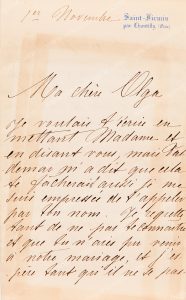 1er Novembre
Saint-Firmin
par Chantilly, (Oise)
Ma chère Olga
Je voulais t'écrire en
mettant Madame et
en disant vous, mais Val
demar m'a dit que cela
te facherait aussi je me
suis empressé de t'appeler
par ton nom. Je regrette
tant de ne pas te connaitre
et que tu n'aies pu venir
à notre mariage, et j'es
père tant qu'il ne se pas